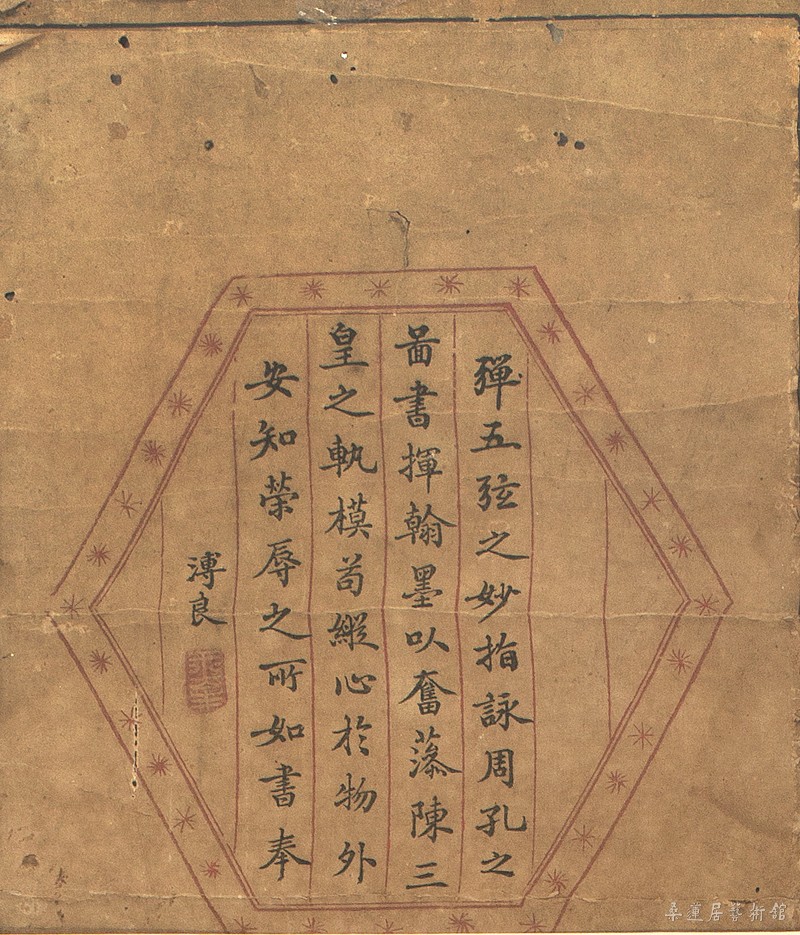 彈五弦之妙指詠周孔之
啚書揮翰墨以奮藻陳三
皇之軌模苟縱心於物外
安知榮辱之所如書奉
溥良
桑蓮居藝術館